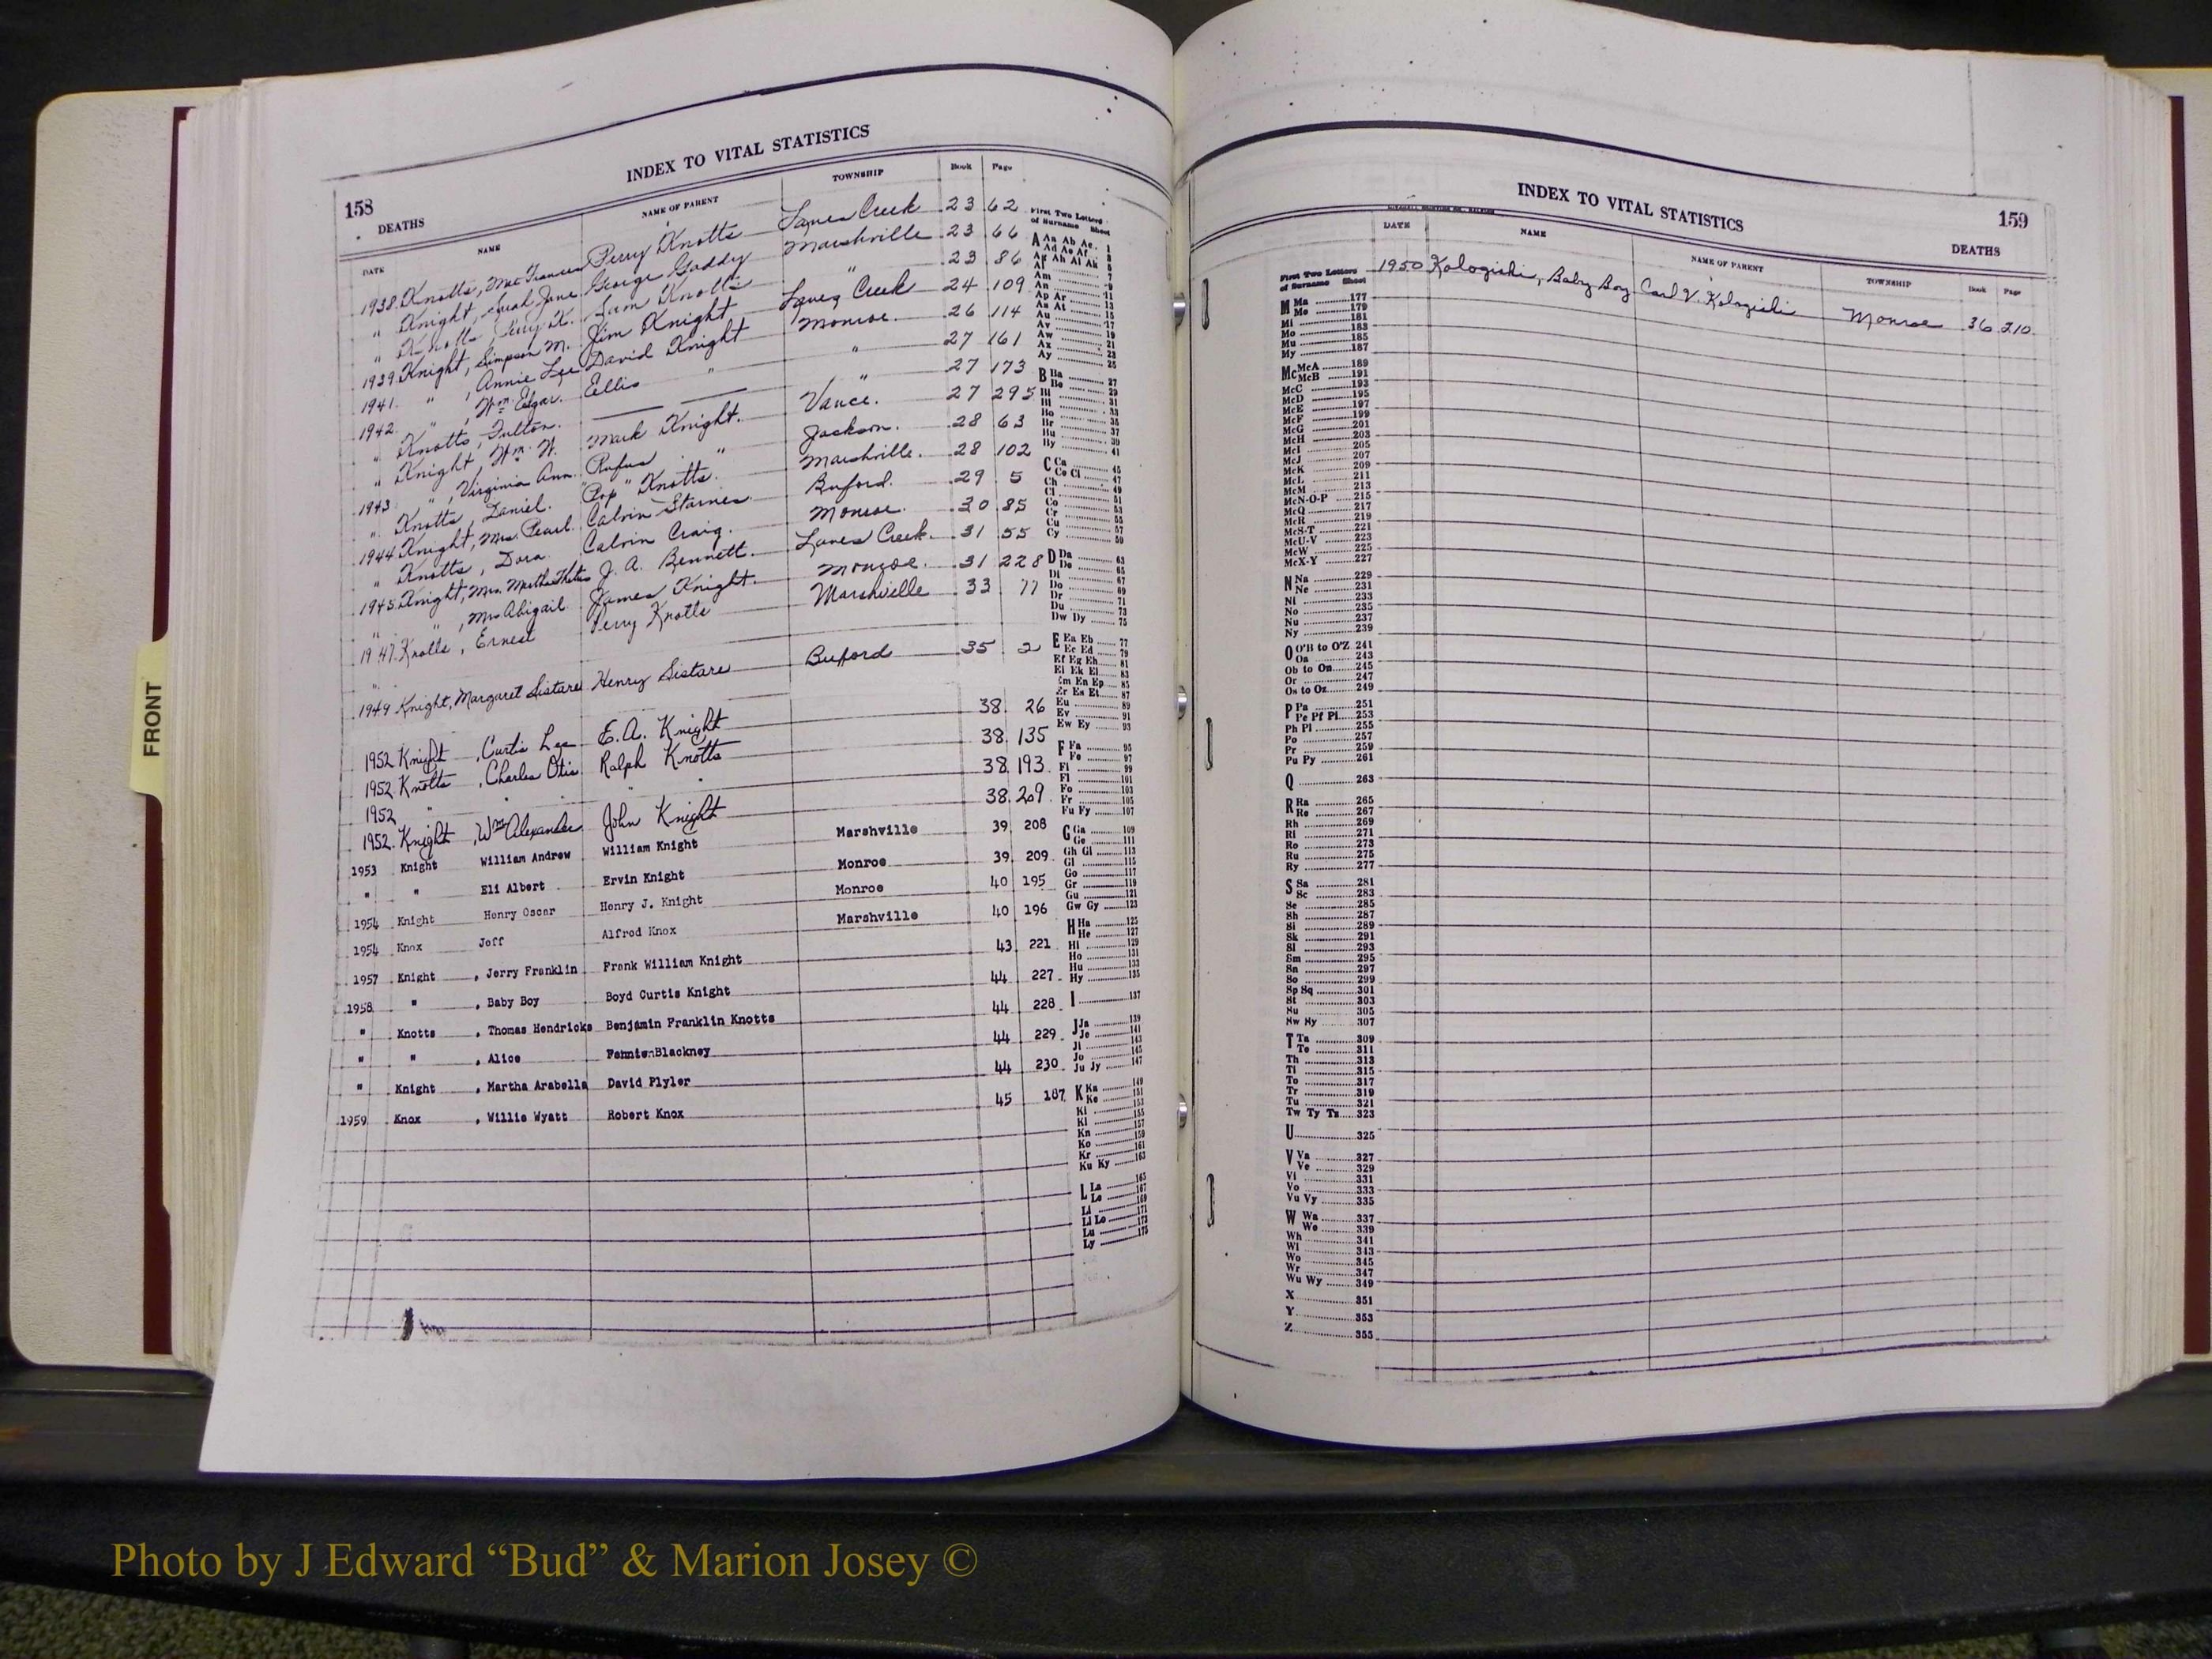 FRONT
158
INDEX TO VITAL STATISTICS
DEATHS
DATE NAME NAME OF PARENT TOWNSHIP Book Page
1938 Knotts, Mae Frances Perry Knotts Lanes Creek 23 62
" Knight, Sarah Jane George Gaddy Marshville 23 66
" Knotts, Perry K. Sam Knotts " 23 86
1939 Knight, Simpson M. Jim Knight Lanes Creek 24 109
1941 " , Annie Lee David Knight Monroe 26 114
1942 " , Wm Edgar Ellis " " 27 161
" Knotts, Fulton " 27 173
" Knight, Wm. W. Mark Knight Vance 27 295
1943 " , Virginia Ann Rufus " Jackson 28 63
" Knotts, Daniel "Pop" Knotts Marshville 28 102
1944 Knight, Mrs. Pearl Calvin Starnes Buford 29 5
" Knotts, Dora Calvin Craig Monroe 30 85
1945 Knight, Mrs. Martha J. A. Bennett Lanes Creek 31 55
" " , Mrs Abigail James Knight Monroe 31 228
1947 Knotts, Ernest Perry Knotts Marshville 33 77
"
1949 Knight, Margaret Sistare Henry Sistare Buford 35 2
1952 Knight , Curtis Lee E.A. Knight 38 26
1952 Knotts , Charles Otis Ralph Knotts 38 135
1952 " " " 38 193
1952 Knight , Wm Alexander John Knight 38 209
1953 Knight William Andrew William Knight Marshville 39 208
" " Eli Albert Ervin Knight Monroe 39 209
1954 Knight Henry Oscar Henry J. Knight Monroe 40 195
1954 Knox Jeff Alfred Knox Marshville 40 196
1957 Knight , Jerry Franklin Frank William Knight 43 221
1958 " , Baby Boy Boyd Curtis Knight 44 227
" Knotts , Thomas Hendricks Benjamin Franklin Knotts 44 228
" " , Alice Blackney 44 229
" Knight , Martha Arabella David Plyler 44 230
1959 Knox , Willie Wyatt Robert Knox 45 187
First Two Letters
of Surname Sheet
A Aa Ab Ac 1
Ad Ae Af
Ag Ah Ai Ak
Al 7
Am 9
An 11
Ap Ar 13
As At 15
Au 17
Av 19
Aw 21
Ax 23
Ay 25
B Ba 27
Be 29
Bi 31
Bl 33
Bo 35
Br 37
Bu 39
By 41
C Ca 45
Ce Ci 47
Ch 49
Cl 51
Co 53
Cr 55
Cu 57
Cy 59
D Da 63
De 65
Di 67
Do 69
Dr 71
Du 73
Dw Dy 75
E Ea Eb 77
Ec Ed 79
Ef Eg Eh 81
Ei Ek El 83
Em En Ep 85
Er Es Et 87
Eu 89
Ev 91
Ew Ey 93
F Fa 95
Fe 97
Fi 99
Fl 101
Fo 103
Fr 105
Fu Fy 107
G Ga 109
Ge 111
Gh Gi 113
Gl 115
Go 117
Gr 119
Gu 121
Gw Gy 123
H Ha 125
He 127
Hi 129
Ho 131
Hu 133
Hy 135
I 137
J Ja 139
Je 141
Ji 143
Jo 145
Ju Jy 147
K Ka 149
Ke 151
Ki 155
Kl 157
Kn
Ko 159
Kr 161
Ku Ky 163
L La 165
Le 167
Li 169
Ll Lo 171
Lu 173
Ly 175
INDEX TO VITAL STATISTICS
159
DEATHS
DATE NAME NAME OF PARENT TOWNSHIP Book Page
1950 Kologiski, Baby Boy Carl V. Kologiski Monroe 36 210
First Two Letters
of Surname Sheet
M Ma 177
Me 179
Mi 181
Mo 183
Mu 185
My 187
Mc McA 189
McB 191
McC 193
McD 195
McE 197
McF 199
McG 201
McH 203
McI 205
McJ 207
McK 209
McL 211
McM 213
McN-O-P 215
McQ 217
McR 219
McS-T 221
McU-V 223
McW 225
McX-Y 227
N Na 229
Ne 231
Ni 233
No 235
Nu 237
Ny 239
O O'B to O'Z 241
Oa 243
Ob to On 245
Or 247
Os to Oz 249
P Pa 251
Pe Pf Pl 253
Ph Pi 255
Po 257
Pr 259
Pu Py 261
Q 263
R Ra 265
Re 267
Rh 269
Ri 271
Ro 273
Ru 275
Ry 277
S Sa 281
Sc 283
Se 285
Sh 287
Si 289
Sk 291
Sl 293
Sm 295
Sn 297
So 299
Sp Sq 301
St 303
Su 305
Sw Sy 307
T Ta 309
Te 311
Th 313
Ti 315
To 317
Tr 319
Tu 321
Tw Ty Tz 323
U 325
V Va 327
Ve 329
Vi 331
Vo 333
Vu Vy 335
W Wa 337
We 339
Wh 341
Wi 343
Wo 345
Wr 347
Wu Wy 349
X 351
Y 353
Z 355
Photo by J Edward “Bud” & Marion Josey ©